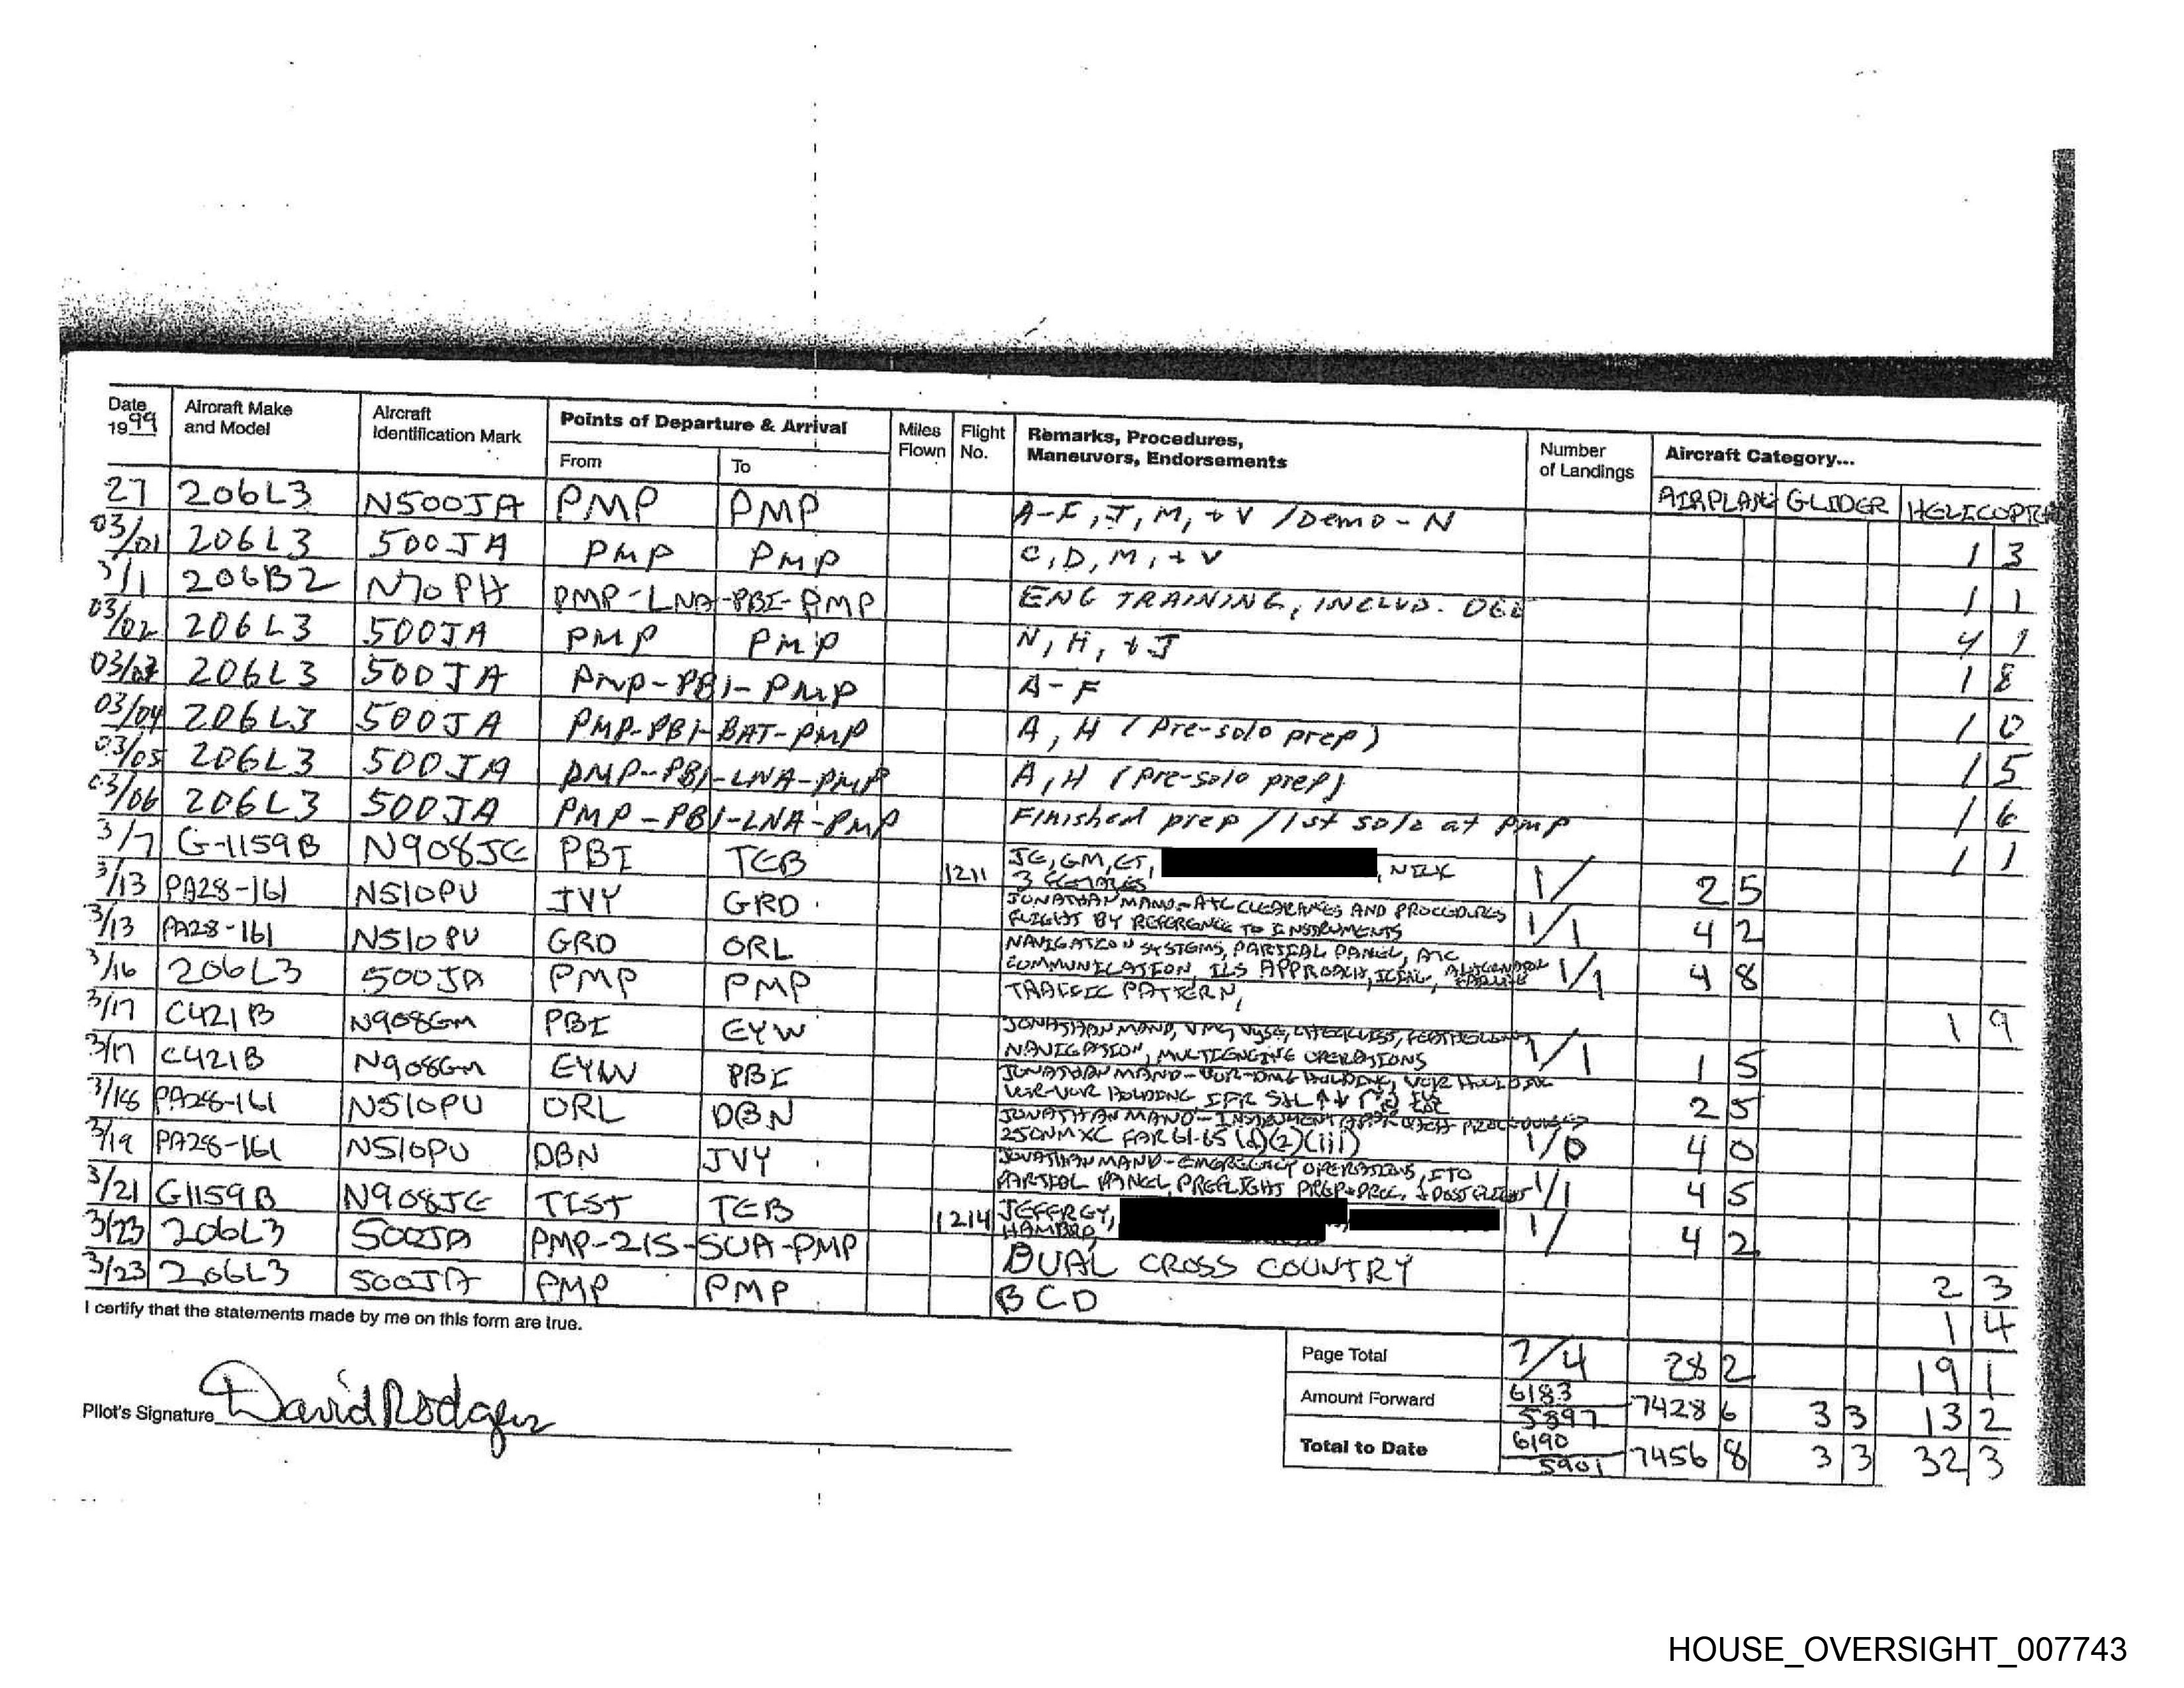 Date 1999 Aircraft Make and Model Aircraft Identification Mark Points of Departure & Arrival From To Miles Flown Flight No. Remarks, Procedures, Maneuvers, Endorsements Number of Landings Aircraft Category... AIRPLANE GLIDER HELICOPTER
27 206L3 N500JA PMP PMP A-F, J, M, + V / Demo - N 1 3
03/01 206L3 500JA PMP PMP C, D, M, + V 1 1
3/1 206B2 N70PH PMP-LNA-PBI-PMP ENG TRAINING, INCLUD. 4 1
03/02 206L3 500JA PMP PMP N, H, + J 1 8
03/03 206L3 500JA PMP-PBI-PMP A-F 1 0
03/04 206L3 500JA PMP-PBI-BAT-PMP A, H (pre-solo prep) 1 5
03/05 206L3 500JA PMP-PBI-LNA-PMP A, H (pre-solo prep) 1 6
03/06 206L3 500JA PMP-PBI-LNA-PMP Finished prep / 1st solo at PMP 1 1
3/7 G-1159B N908JE PBI TEB 1211 JE, GM, ET, 3 FEMALES 1/ 2 5
3/13 PA28-161 N510PU JVY GRD JONATHAN MANO-ATC CLEARANCES AND PROCEDURES FLIGHT BY REFERENCE TO INSTRUMENTS 1/1 4 2
3/13 PA28-161 N510PU GRD ORL NAVIGATION SYSTEMS, PARTIAL PANEL, ATC COMMUNICATION, ILS APPROACH, 1/1 4 8
3/16 206L3 500JA PMP PMP TRAFFIC PATTERN, 1 9
3/17 C421B N908GM PBI EYW JONATHAN MANO, VMC, VYSE, NAVIGATION, MULTIENGINE OPERATIONS 1/1 1 5
3/17 C421B N908GM EYW PBI JONATHAN MANO-VOR-DME HOLDING, VOR HOLDING VOR-VOR HOLDING IFR 2 5
3/18 PA28-161 N510PU ORL DBN JONATHAN MANO-INSTRUMENT APPROACH PROCEDURES 250NM XC FAR 61-65 (d)(2)(iii) 1/0 4 0
3/19 PA28-161 N510PU DBN JVY JONATHAN MANO-EMERGENCY OPERATIONS, ITO PARTIAL PANEL, PREFLIGHT PREP + PROC. + POSTFLIGHT 1/1 4 5
3/21 G1159B N908JE TIST TEB 1214 JEFFREY, HAMBRO, 1/ 4 2
3/23 206L3 500JA PMP-21S-SUA-PMP DUAL CROSS COUNTRY 2 3
3/23 206L3 500JA PMP PMP BCD 1 4
I certify that the statements made by me on this form are true.
Page Total 7/4 28 2 19 1
Amount Forward 6183 5897 7428 6 3 3 13 2
Pilot's Signature David Rodgers
Total to Date 6190 5901 7456 8 3 3 32 3
HOUSE_OVERSIGHT_007743